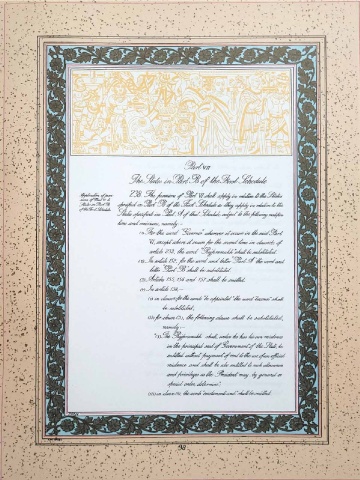 Part VII
The States in Part B of the First Schedule
Application of provisions of Part VI to States in Part B of the First Schedule.
238. The provisions of Part VI shall apply in relation to the States
specified in Part B of the First Schedule as they apply in relation to the
States specified in Part A of that Schedule subject to the following modifica-
tions and omissions, namely :-
(1) For the word "Governor" wherever it occurs in the said Part
VI, except where it occurs for the second time in clause (b) of
article 232, the word "Rajpramukh" shall be substituted.
(2) In article 152, for the word and letter "Part A" the word and
letter "Part B" shall be substituted.
(3) Articles 155, 156 and 157 shall be omitted.
(4) In article 158,—
(i) in clause (1) for the words "be appointed" the word "become" shall
be substituted;
(ii) for clause (3), the following clause shall be substituted,
namely :-
"(3) The Rajpramukh shall, unless he has his own residence
in the principal seat of Government of the State, be
entitled without payment of rent to the use of an official
residence and shall be also entitled to such allowances
and privileges as the President may, by general or
special order, determine";
(iii) in clause (4), the words "emoluments and" shall be omitted.
98